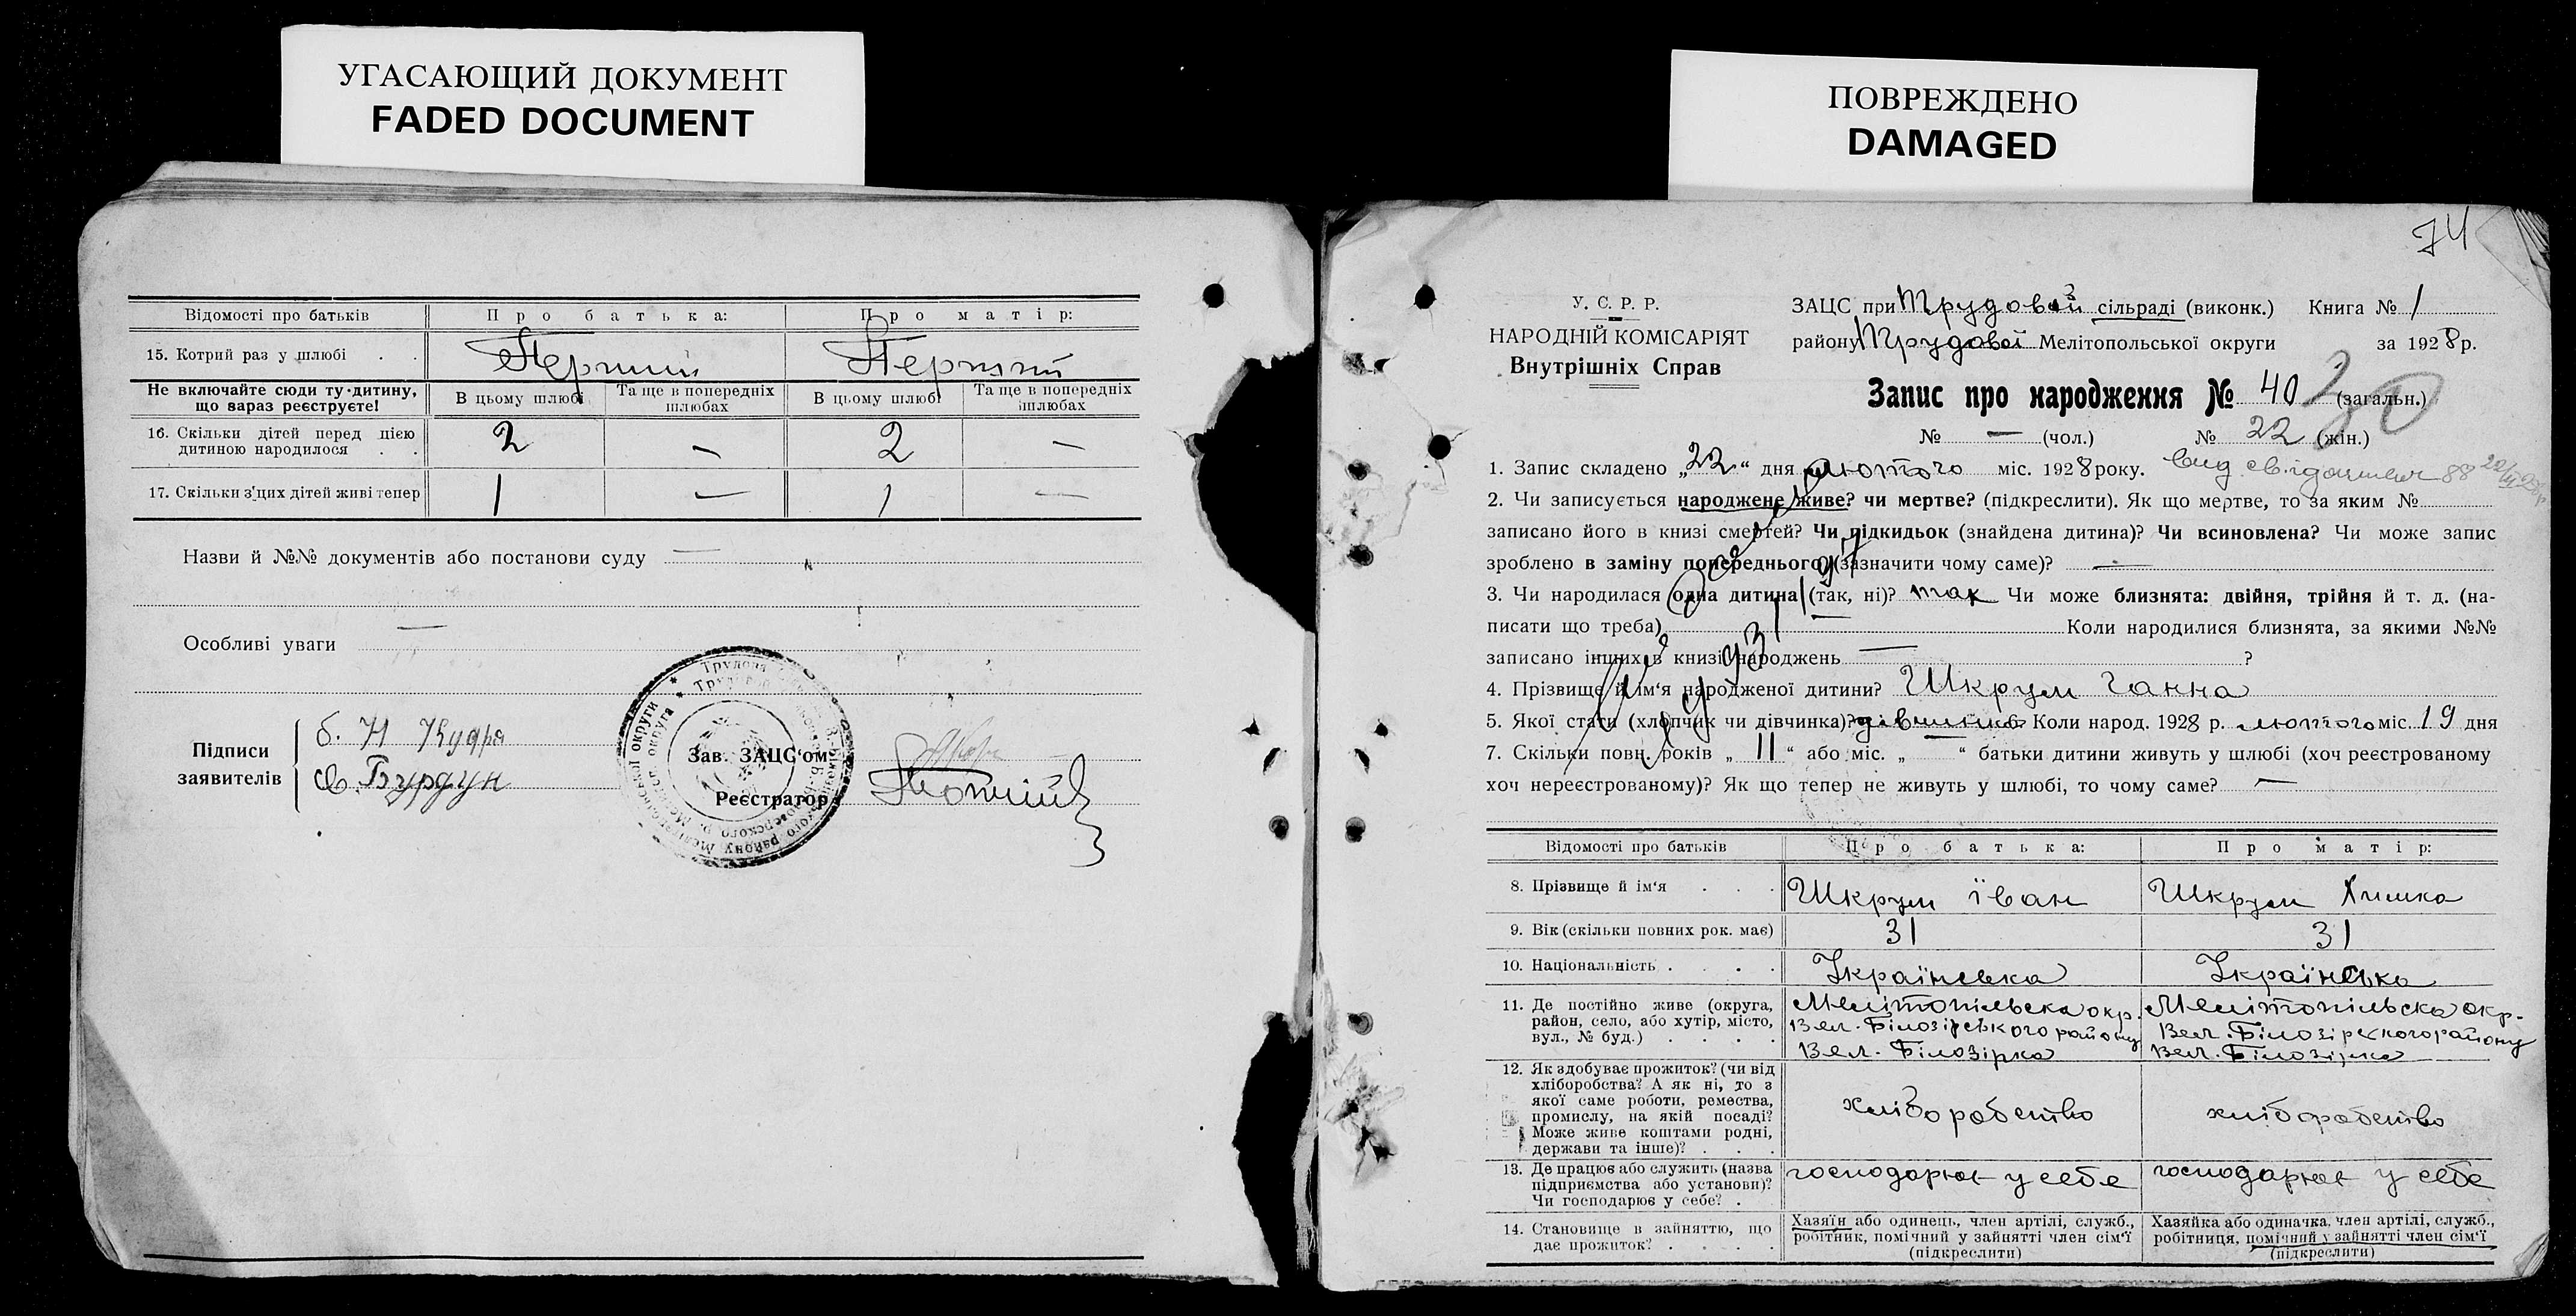 УГАСАЮЩИЙ ДОКУМЕНТ
FADED DOCUMENT
Відомості про батьків Про батька: Про матір:
15. Котрий раз у шлюбі . . Перший Перший
Не включайте сюди ту дитину, що вараз реєструєте! В цьому шлюбі Та ще в попередніх шлюбах В цьому шлюбі Та ще в попередніх шлюбах
16. Скільки дітей перед цією
дитиною народилося . . 2 — 2 —
17. Скільки з цих дітей живі тепер 1 — 1 —
Назви й №№ документів або постанови суду —
Особливі уваги —
Підписи
заявителів
б. Н Кудря
Бурдун
Зав. ЗАЦС'ом
Реєстратор
ПОВРЕЖДЕНО
DAMAGED
74
У. С. Р. Р.
НАРОДНІЙ КОМІСАРІЯТ
Внутрішніх Справ
ЗАЦС при Трудовой сільраді (виконк.) Книга № 1
району Трудовой Мелітопольської округи за 1928 р.
Запис про народження № 40 (загальн.)
№ — (чол.) № 22 (жін.)
1. Запис складено „22“ дня лютого міс. 1928 року.
2. Чи записується народжене живе? чи мертве? (підкреслити). Як що мертве, то за яким №
записано його в книзі смертей? Чи підкидьок (знайдена дитина)? Чи всиновлена? Чи може запис
зроблено в заміну попереднього (зазначити чому саме)? —
3. Чи народилася одна дитина (так, ні)? так Чи може близнята: двійня, трійня й т. д. (на-
писати що треба) Коли народилися близнята, за якими №№
записано інших в книзі народжень — ?
4. Прізвище й ім'я народженої дитини? Шкрум Ганна
5. Якої статі (хлопчик чи дівчинка)? дівчинка 6. Коли народ. 1928 р. лютого міс. 19 дня
7. Скільки повн. років „ 11 “ або міс. „ “ батьки дитини живуть у шлюбі (хоч реєстрованому
хоч нереєстрованому)? Як що тепер не живуть у шлюбі, то чому саме? —
Відомості про батьків Про батька: Про матір:
8. Прізвище й ім'я . . . Шкрум Іван Шкрум Химка
9. Вік (скільки повних рок. має) 31 31
10. Національність . . . Українська Українська
11. Де постійно живе (округа,
район, село, або хутір, місто,
вул., № буд.) . . . .
Мелітопільска окр.
Вел. Білозірського району
Вел. Білозірка
Мелітопільска окр.
Вел. Білозірского району
Вел. Білозірка
12. Як здобуває прожиток? (чи від
хліборобства? А як ні, то з
якої саме роботи, ремества,
промислу, на якій посаді?
Може живе коштами родні,
держави та інше)? . . .
хліборобство
хліборобство
13. Де працює або служить (назва
підприємства або установи)?
Чи господарює у себе? .
господарює у себе
господарює у себе
14. Становище в зайняттю, що
дає прожиток? . . . .
Хазяїн або одинець, член артілі, служб.,
робітник, помічний у зайнятті член сім'ї
(підкреслити)
Хазяйка або одиначка, член артілі, служб.,
робітниця, помічний у зайнятті член сім'ї
(підкреслити)